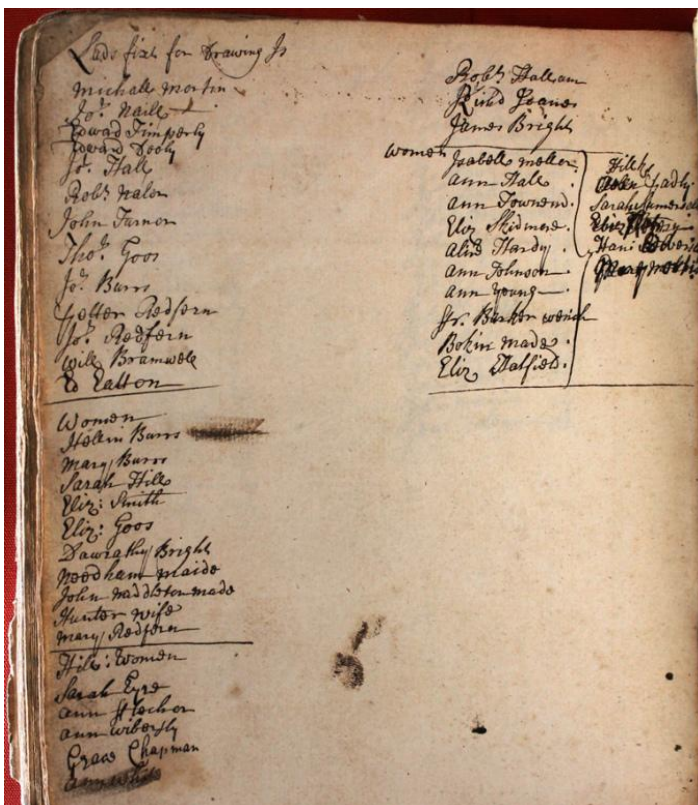 Lads fixt for Drawing Is
michall mortin
Jo: Naill
Edward Timperly
Edward Dooly
Jo: Hall
Rob: Nalor
John Turnor
Tho: Goos
Jo: Burrs
Redfern
Jo: Redfern
Will Bramwell
Ed Eatton
Women
Hellin Burrs
Mary Burrs
Sarah Hill
Eliz: Smith
Eliz: Goos
Dawrathy Bright
Needham maide
John Middleton made
Hunter wife
mary Redfern
Hill: Women
Sarah Eyre
ann
ann
Grace Chapman
ann white
Rob: Hallam
Richd Joanes
James Bright
Women Isabell meller
ann Hall
ann Townend
Eliz Skidmore
Hardy
ann Johnson
ann Young
Jr. Barker wench
made
Eliz Hatfield
Hill
Sarah
Eliz